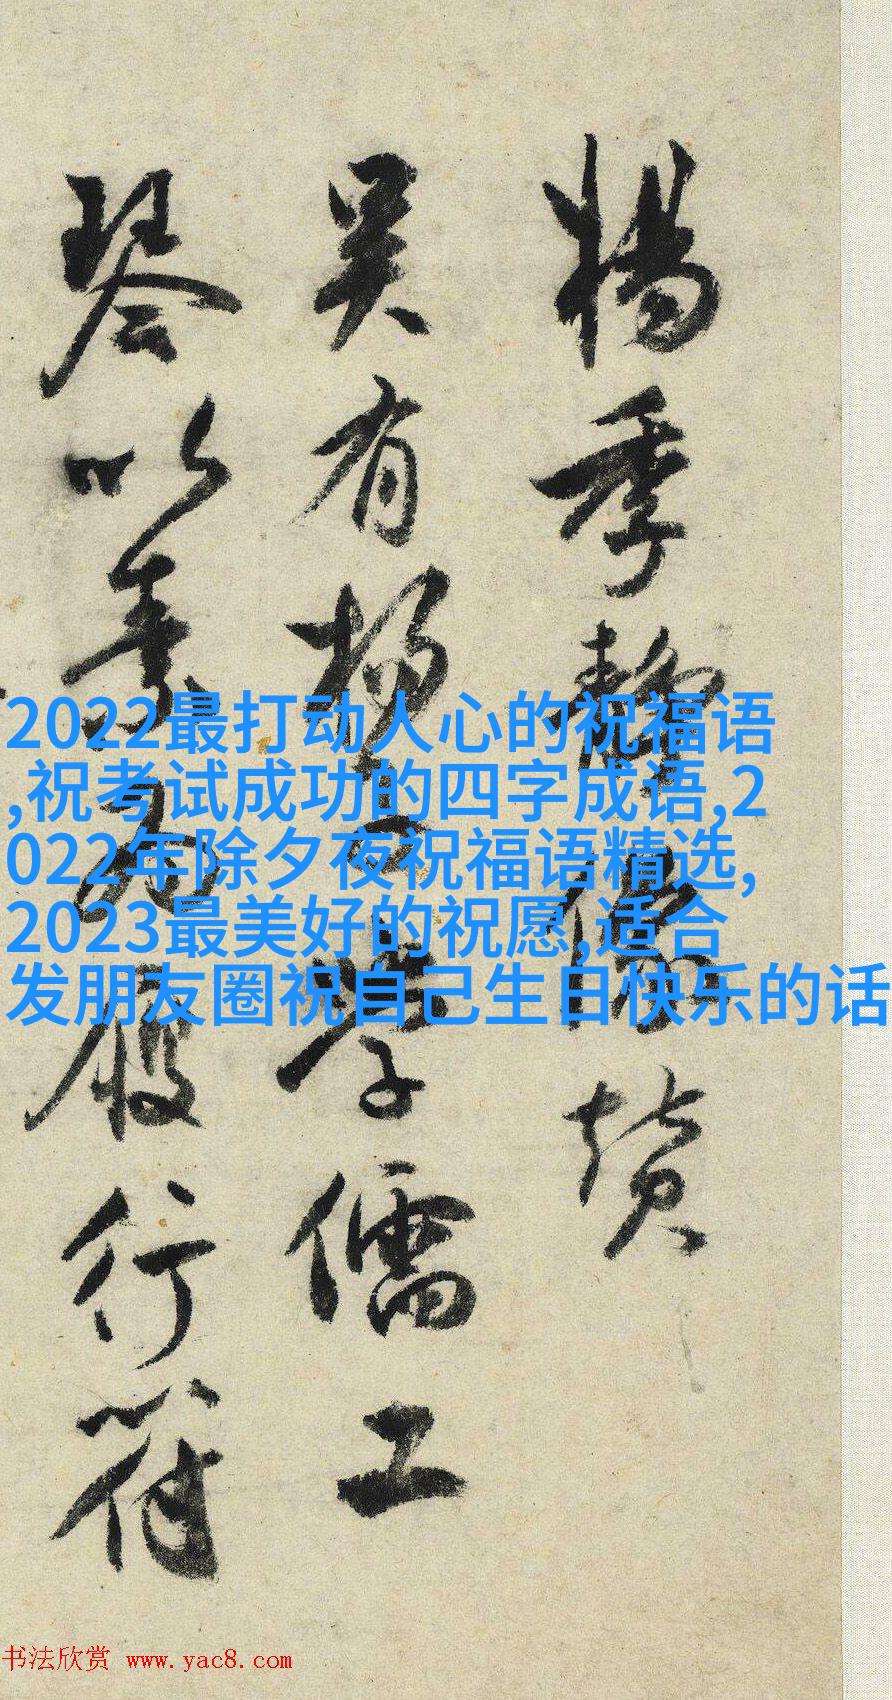 楊季靜像贊
吳有楊學儒工
琴以為履行符
2022最打动人心的祝福语
,祝考试成功的四字成语,2
022年除夕夜祝福语精选,
2023最美好的祝愿,适合
发朋友圈祝自己生日快乐的话
书法欣赏 www.yac8.com